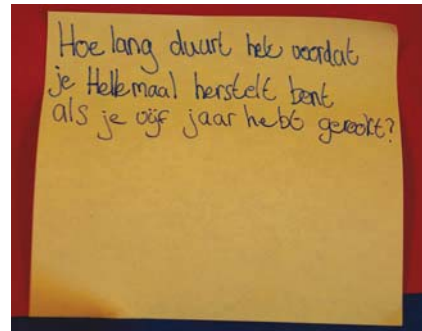 Hoe lang duurt hek voordat
je Hellemaal herstelt bent
als je vijf jaar hebt gerookt?